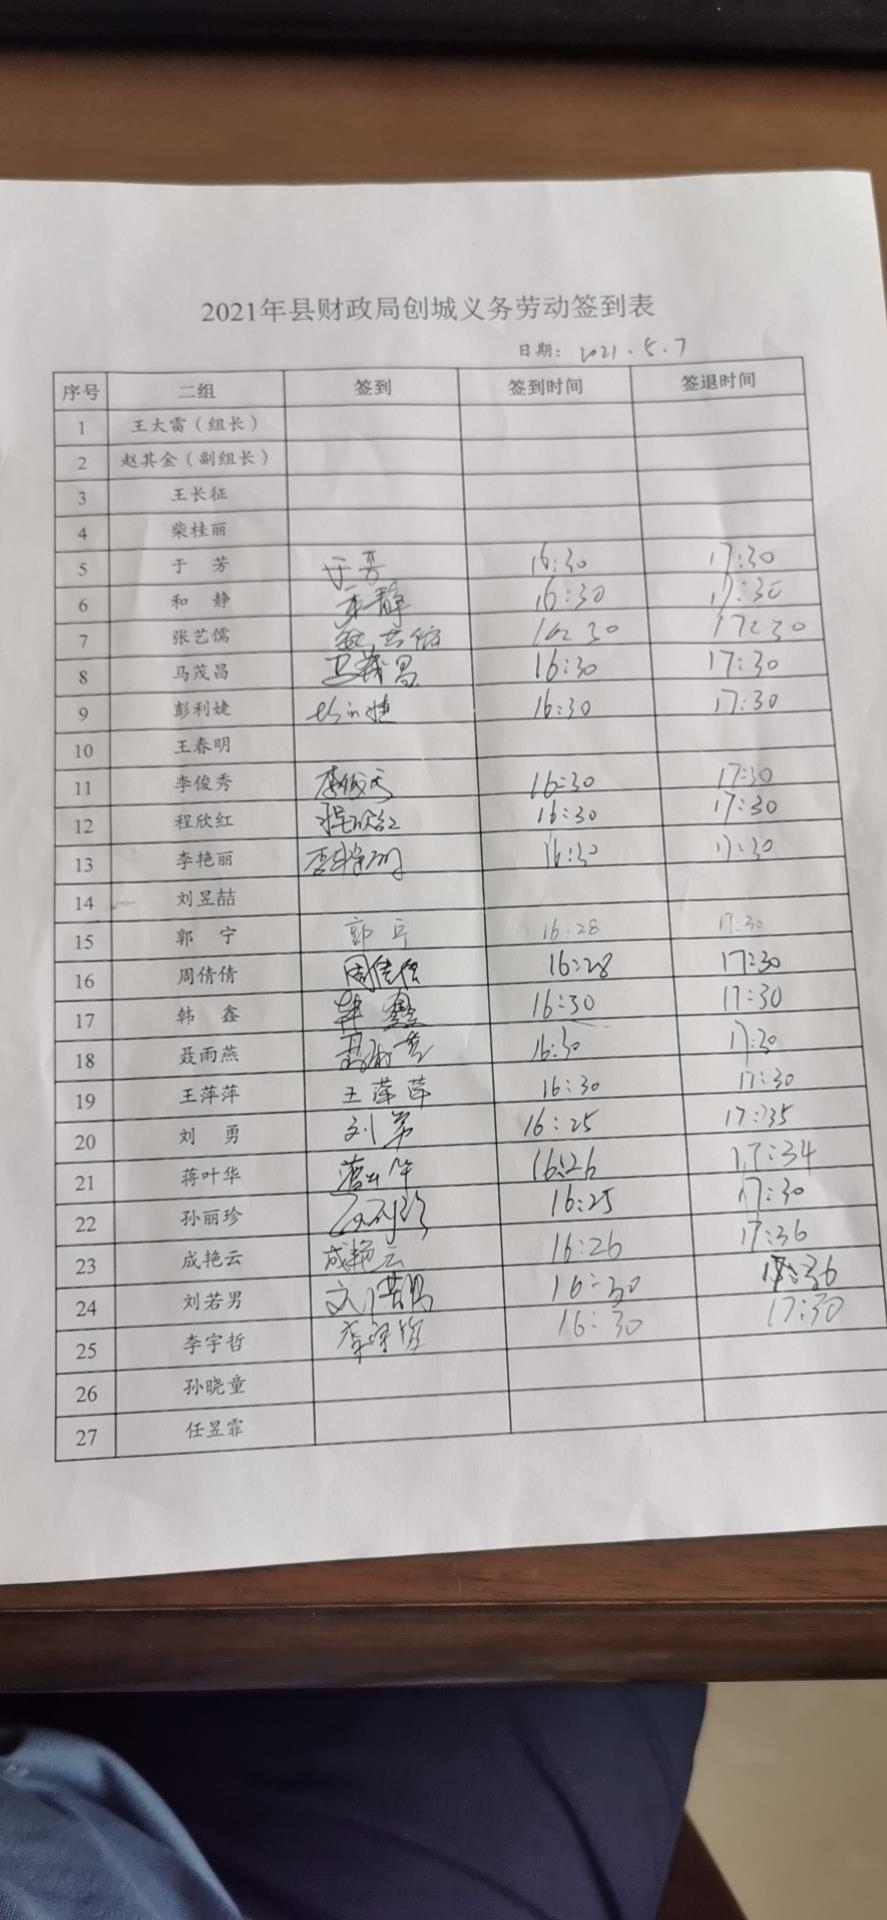 2021年县财政局创城义务劳动签到表
日期： 2021.5.7
序号 二组 签到 签到时间 签退时间
1 王太雷（组长）
2 赵其金（副组长）
3 王长征
4 柴桂丽
5 于 芳 于芳 16:30 17:30
6 和 静 和静 16:30 17:30
7 张艺儒 张艺儒 16:30 17:30
8 马茂昌 马茂昌 16:30 17:30
9 彭利婕 16:30 17:30
10 王春明
11 李俊秀 李俊秀 16:30 17:30
12 程欣红 程欣红 16:30 17:30
13 李艳丽 李艳丽 16:30 17:30
14 刘昱喆
15 郭 宁 郭宁 16:28 17:30
16 周倩倩 周倩倩 16:28 17:30
17 韩 鑫 韩鑫 16:30 17:30
18 聂雨燕 聂雨燕 16:30 17:30
19 王萍萍 王萍萍 16:30 17:30
20 刘 勇 刘勇 16:25 17:35
21 蒋叶华 蒋叶华 16:26 17:34
22 孙丽珍 孙丽珍 16:25 17:30
23 成艳云 成艳云 16:26 17:36
24 刘若男 刘若男 16:30 17:36
25 李宇哲 李宇哲 16:30 17:30
26 孙晓童
27 任昱霏